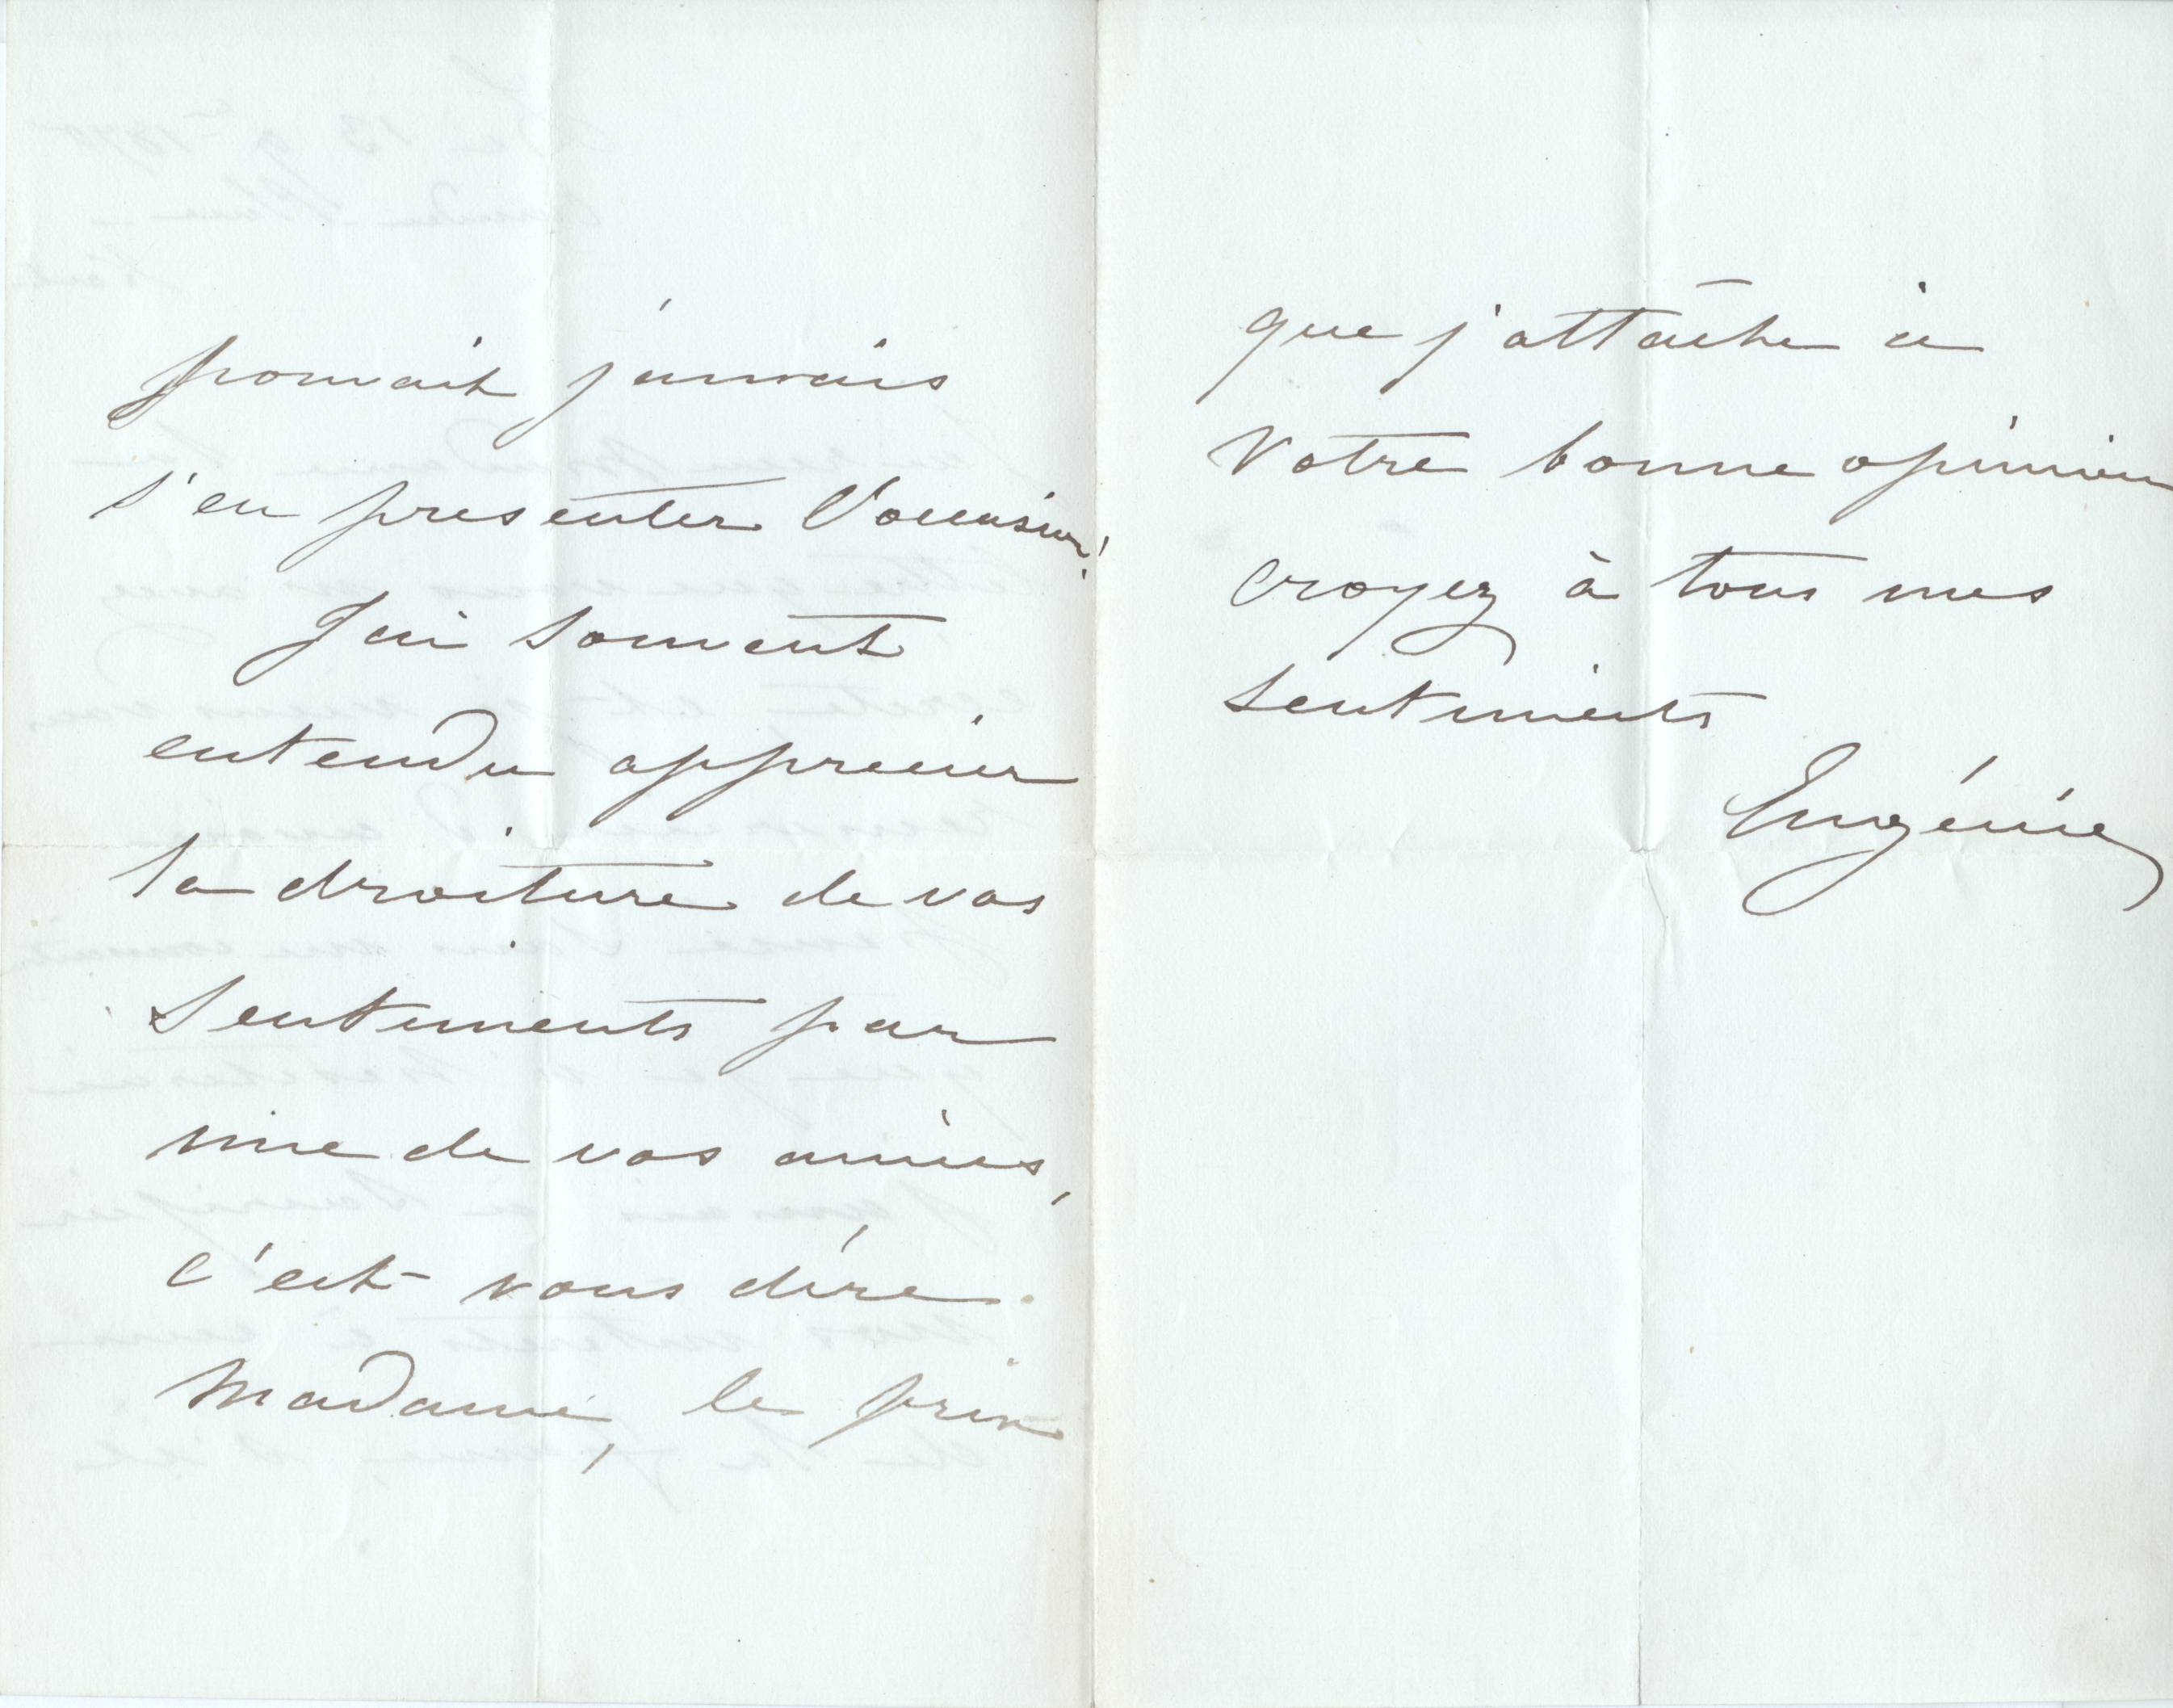 pouvait jamais
s'en presenter l'occasion!
J'ai souvent
entendu apprecier
la droiture de vos
sentiments par
une de vos amies,
c'est vous dire
Madame, le prix
que j'attache à
votre bonne opinion
croyez à tous mes
sentiments
Eugénie